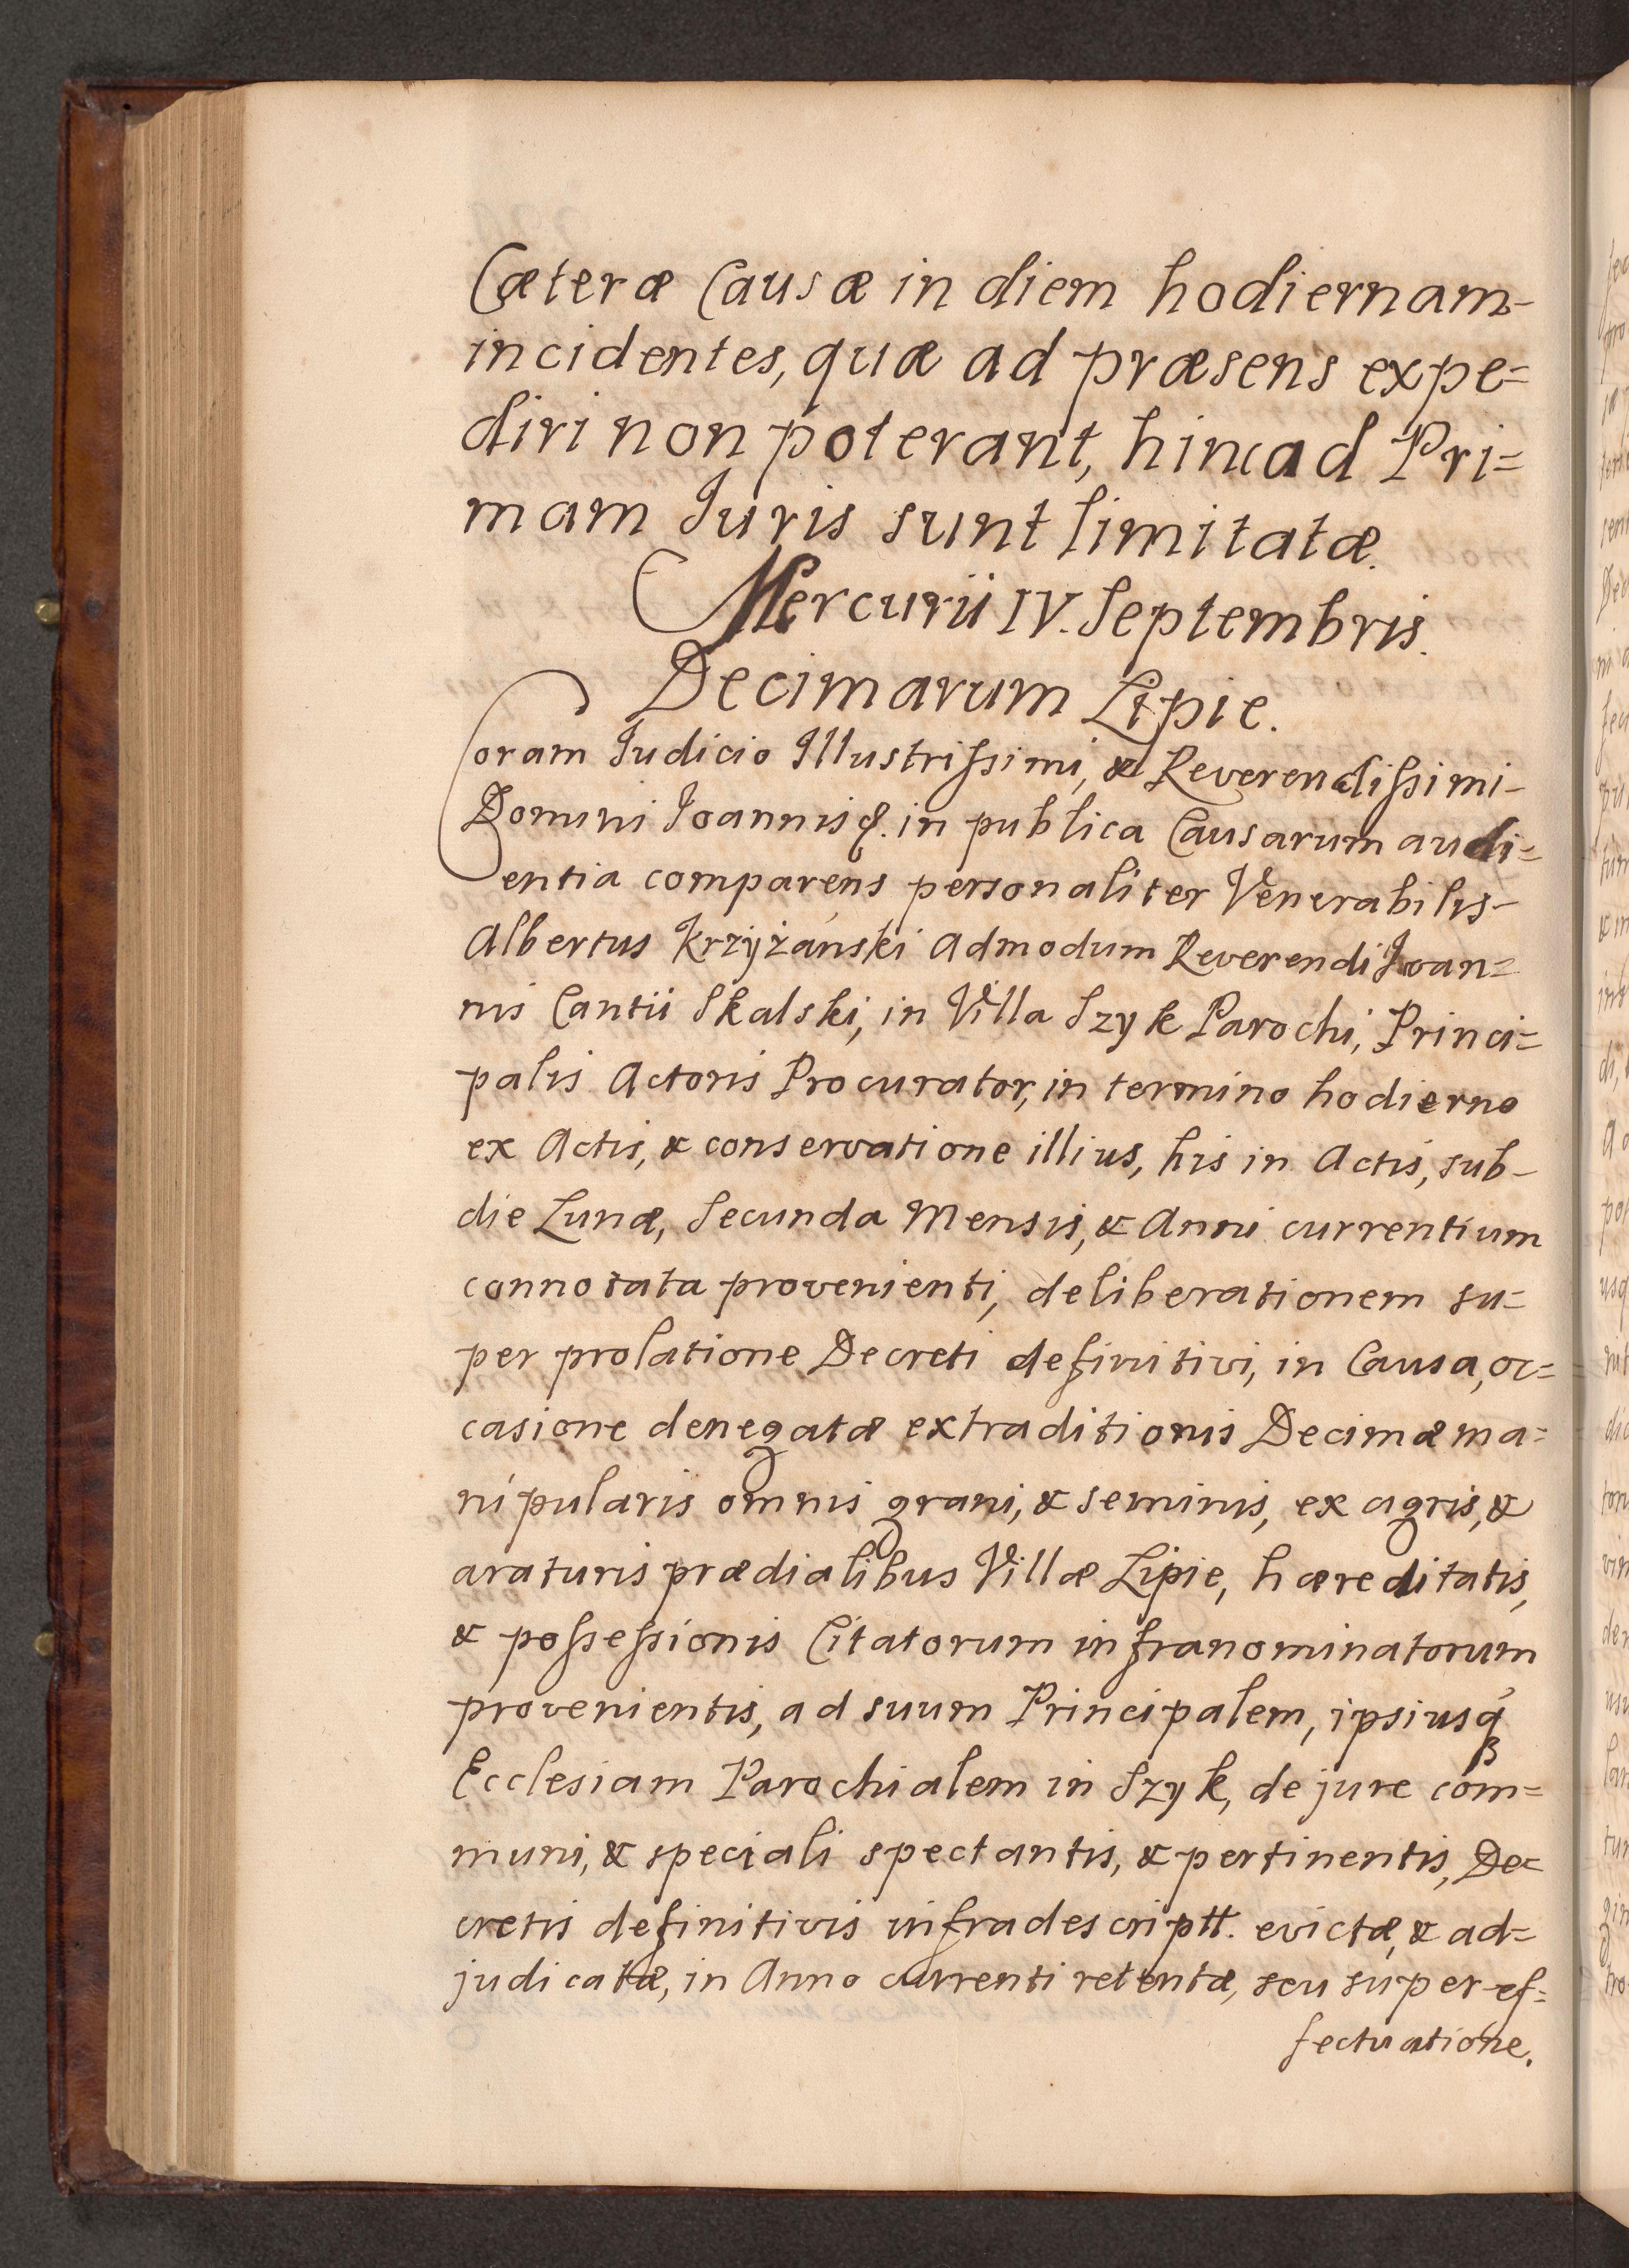 Cæteræ Causæ in diem hodiernam-
incidentes, quæ ad præsens expe=
diri non poterant, hinc ad Pri=
mam Juris sunt limitatæ.
Mercurii IV. Septembris.
Decimarum Lipie.
Coram Judicio Illustrißimi, & Reverendißimi-
Domini Joannis &. in publica Causarum audi=
entia comparens personaliter Venerabilis-
Albertus Krzyżánski Admodum Reverendi Joan=
nis Cantii Skalski, in Villa Szyk Parochi, Princi=
palis Actoris Procurator, in termino hodierno
ex Actis, & conservatione illius, his in Actis, sub-
die Lunæ, Secunda Mensis, & Anni currentium
connotata provenienti, deliberationem su=
per prolatione Decreti definitivi, in Causa, oc=
casione denegatæ extraditionis Decimæ ma=
nipularis omnis grani, & seminis, ex agris, &
araturis prædialibus Villæ Lipie, hæreditatis,
& poßeßionis Citatorum infranominatorum
provenientis, ad suum Principalem, ipsiusq́
Ecclesiam Parochialem in Szyk, de jure com=
muni, & speciali spectantis, & pertinentis, De=
cretis definitivis infradescriptt. evictæ, & ad=
judicatæ, in Anno currenti retentæ, seu super ef=
fectuatione.